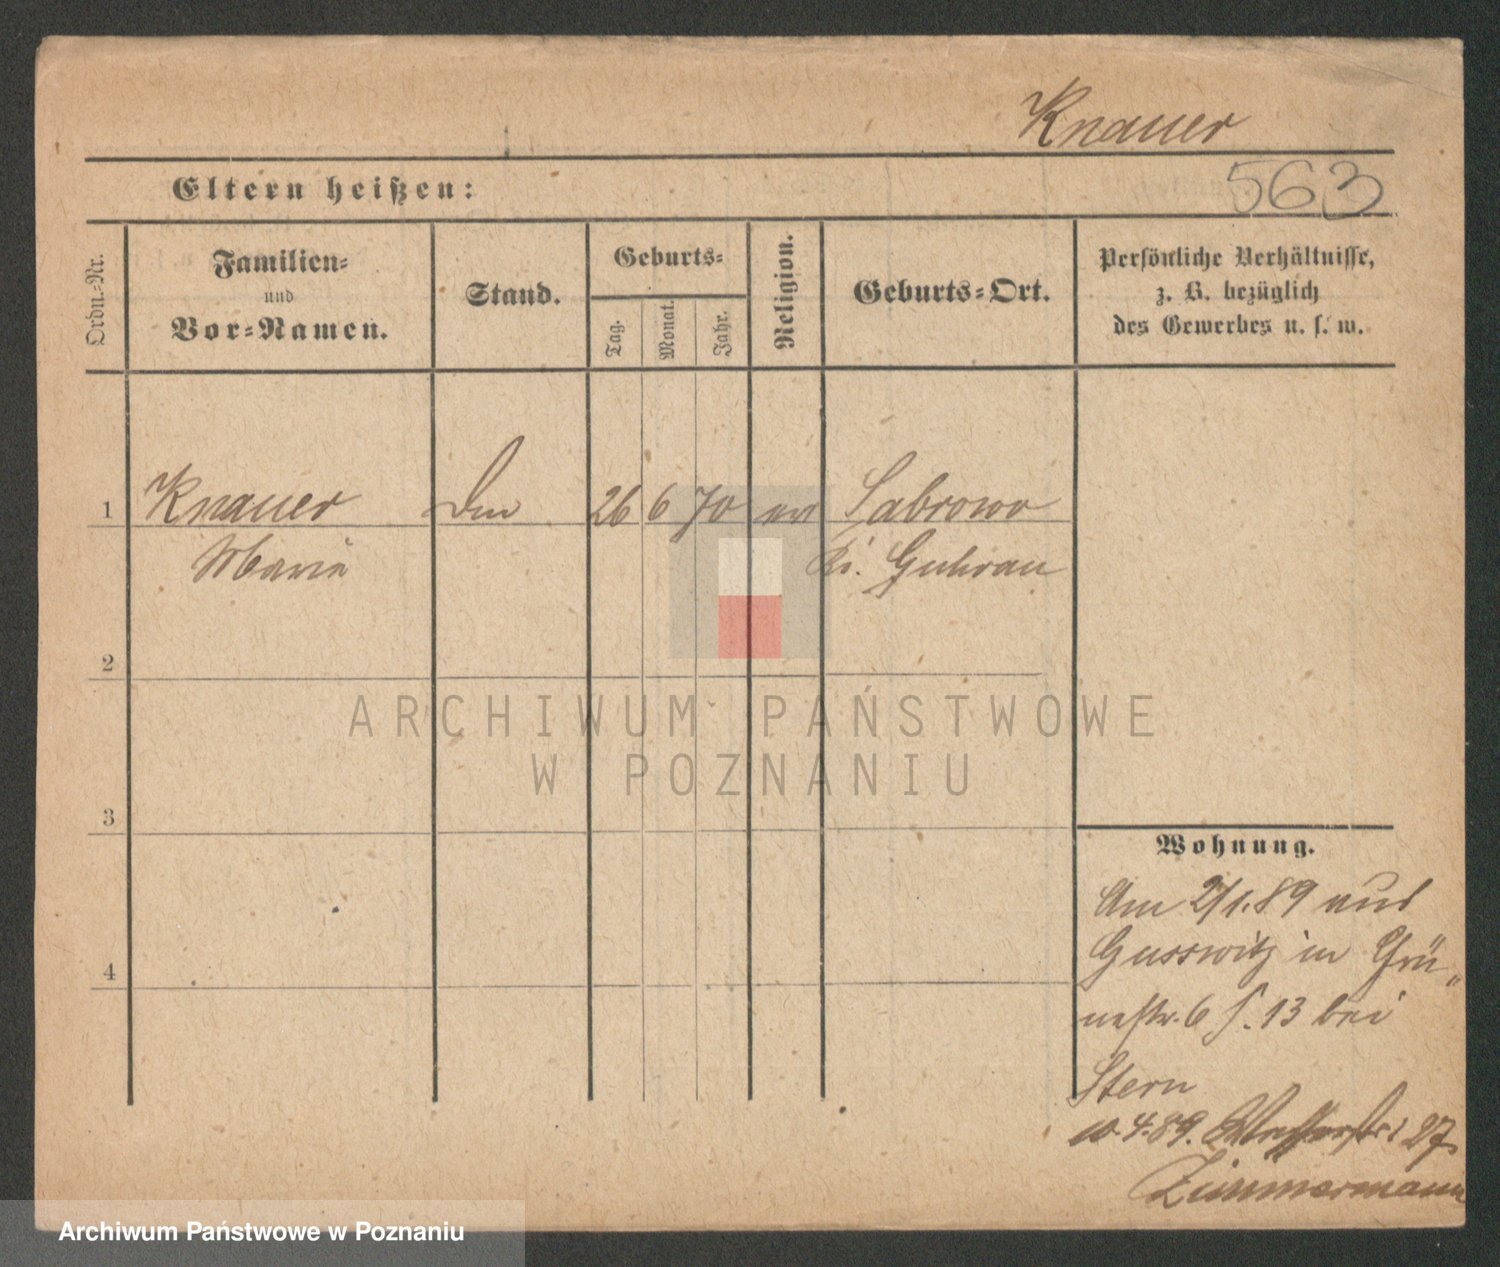 Knauer
Eltern heißen:
563
Ordn.-Nr.
Familien-
und
Vor-Namen.
Stand.
Geburts-
Tag.
Monat.
Jahr.
Religion.
Geburts-Ort.
Persönliche Verhältnisse,
z. B. bezüglich
des Gewerbes u. s. w.
1
Knauer
26
6
70
ev
Sabrowo
Marie
Kr. Guhrau
2
ARCHIWUM PAŃSTWOWE
W POZNANIU
3
Wohnung.
4
Am 2/1.89 aus
Gusswitz in Grü-
nestr. 6 13 bei
Stern
10.4.89. 27
Zimmermann
Archiwum Państwowe w Poznaniu